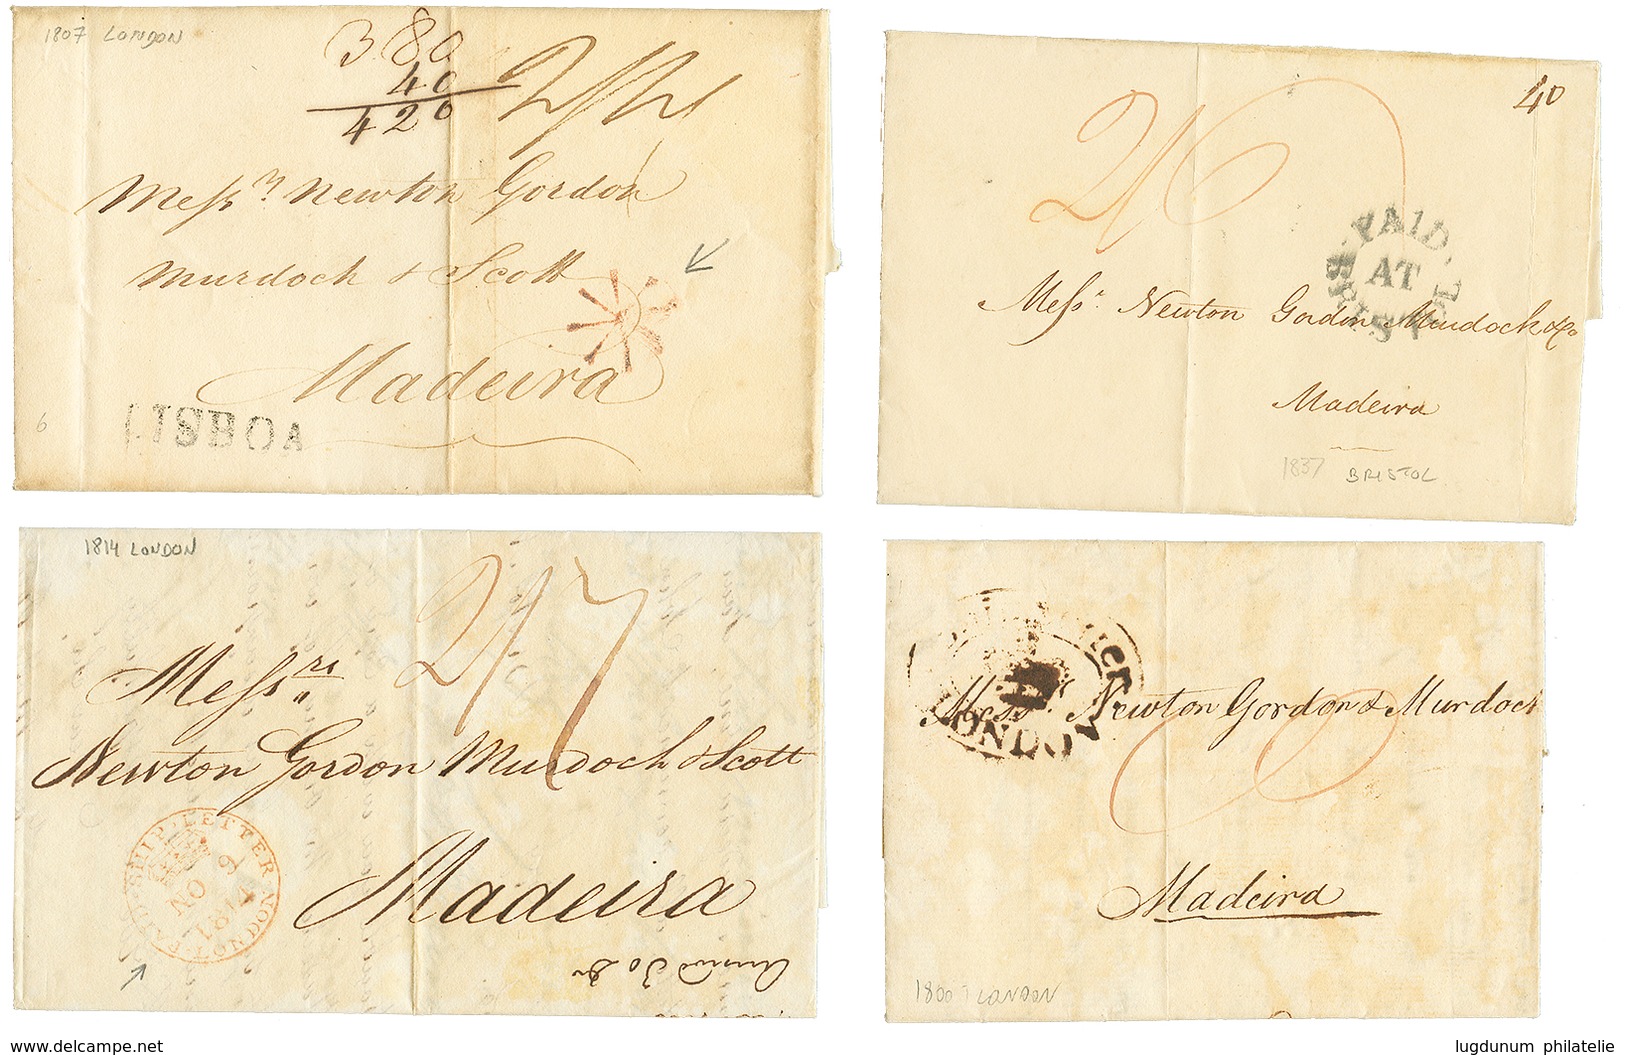 1807 LONDON
380
40
420
Messrs Newton Gordon
Murdoch & Scott
Madeira
LISBOA
6
40
2/6
PAID AT BRISTOL
Messrs Newton Gordon Murdoch & Co
Madeira
1837 BRISTOL
1814 LONDON
2/7
Messrs
Newton Gordon Murdoch & Scott
Madeira
PAID SHIP LETTER LONDON
NO 9
1814
LONDON
Messrs Newton Gordon & Murdoch
Madeira
1800 LONDON
delcampe.net
lugdunum philatelie